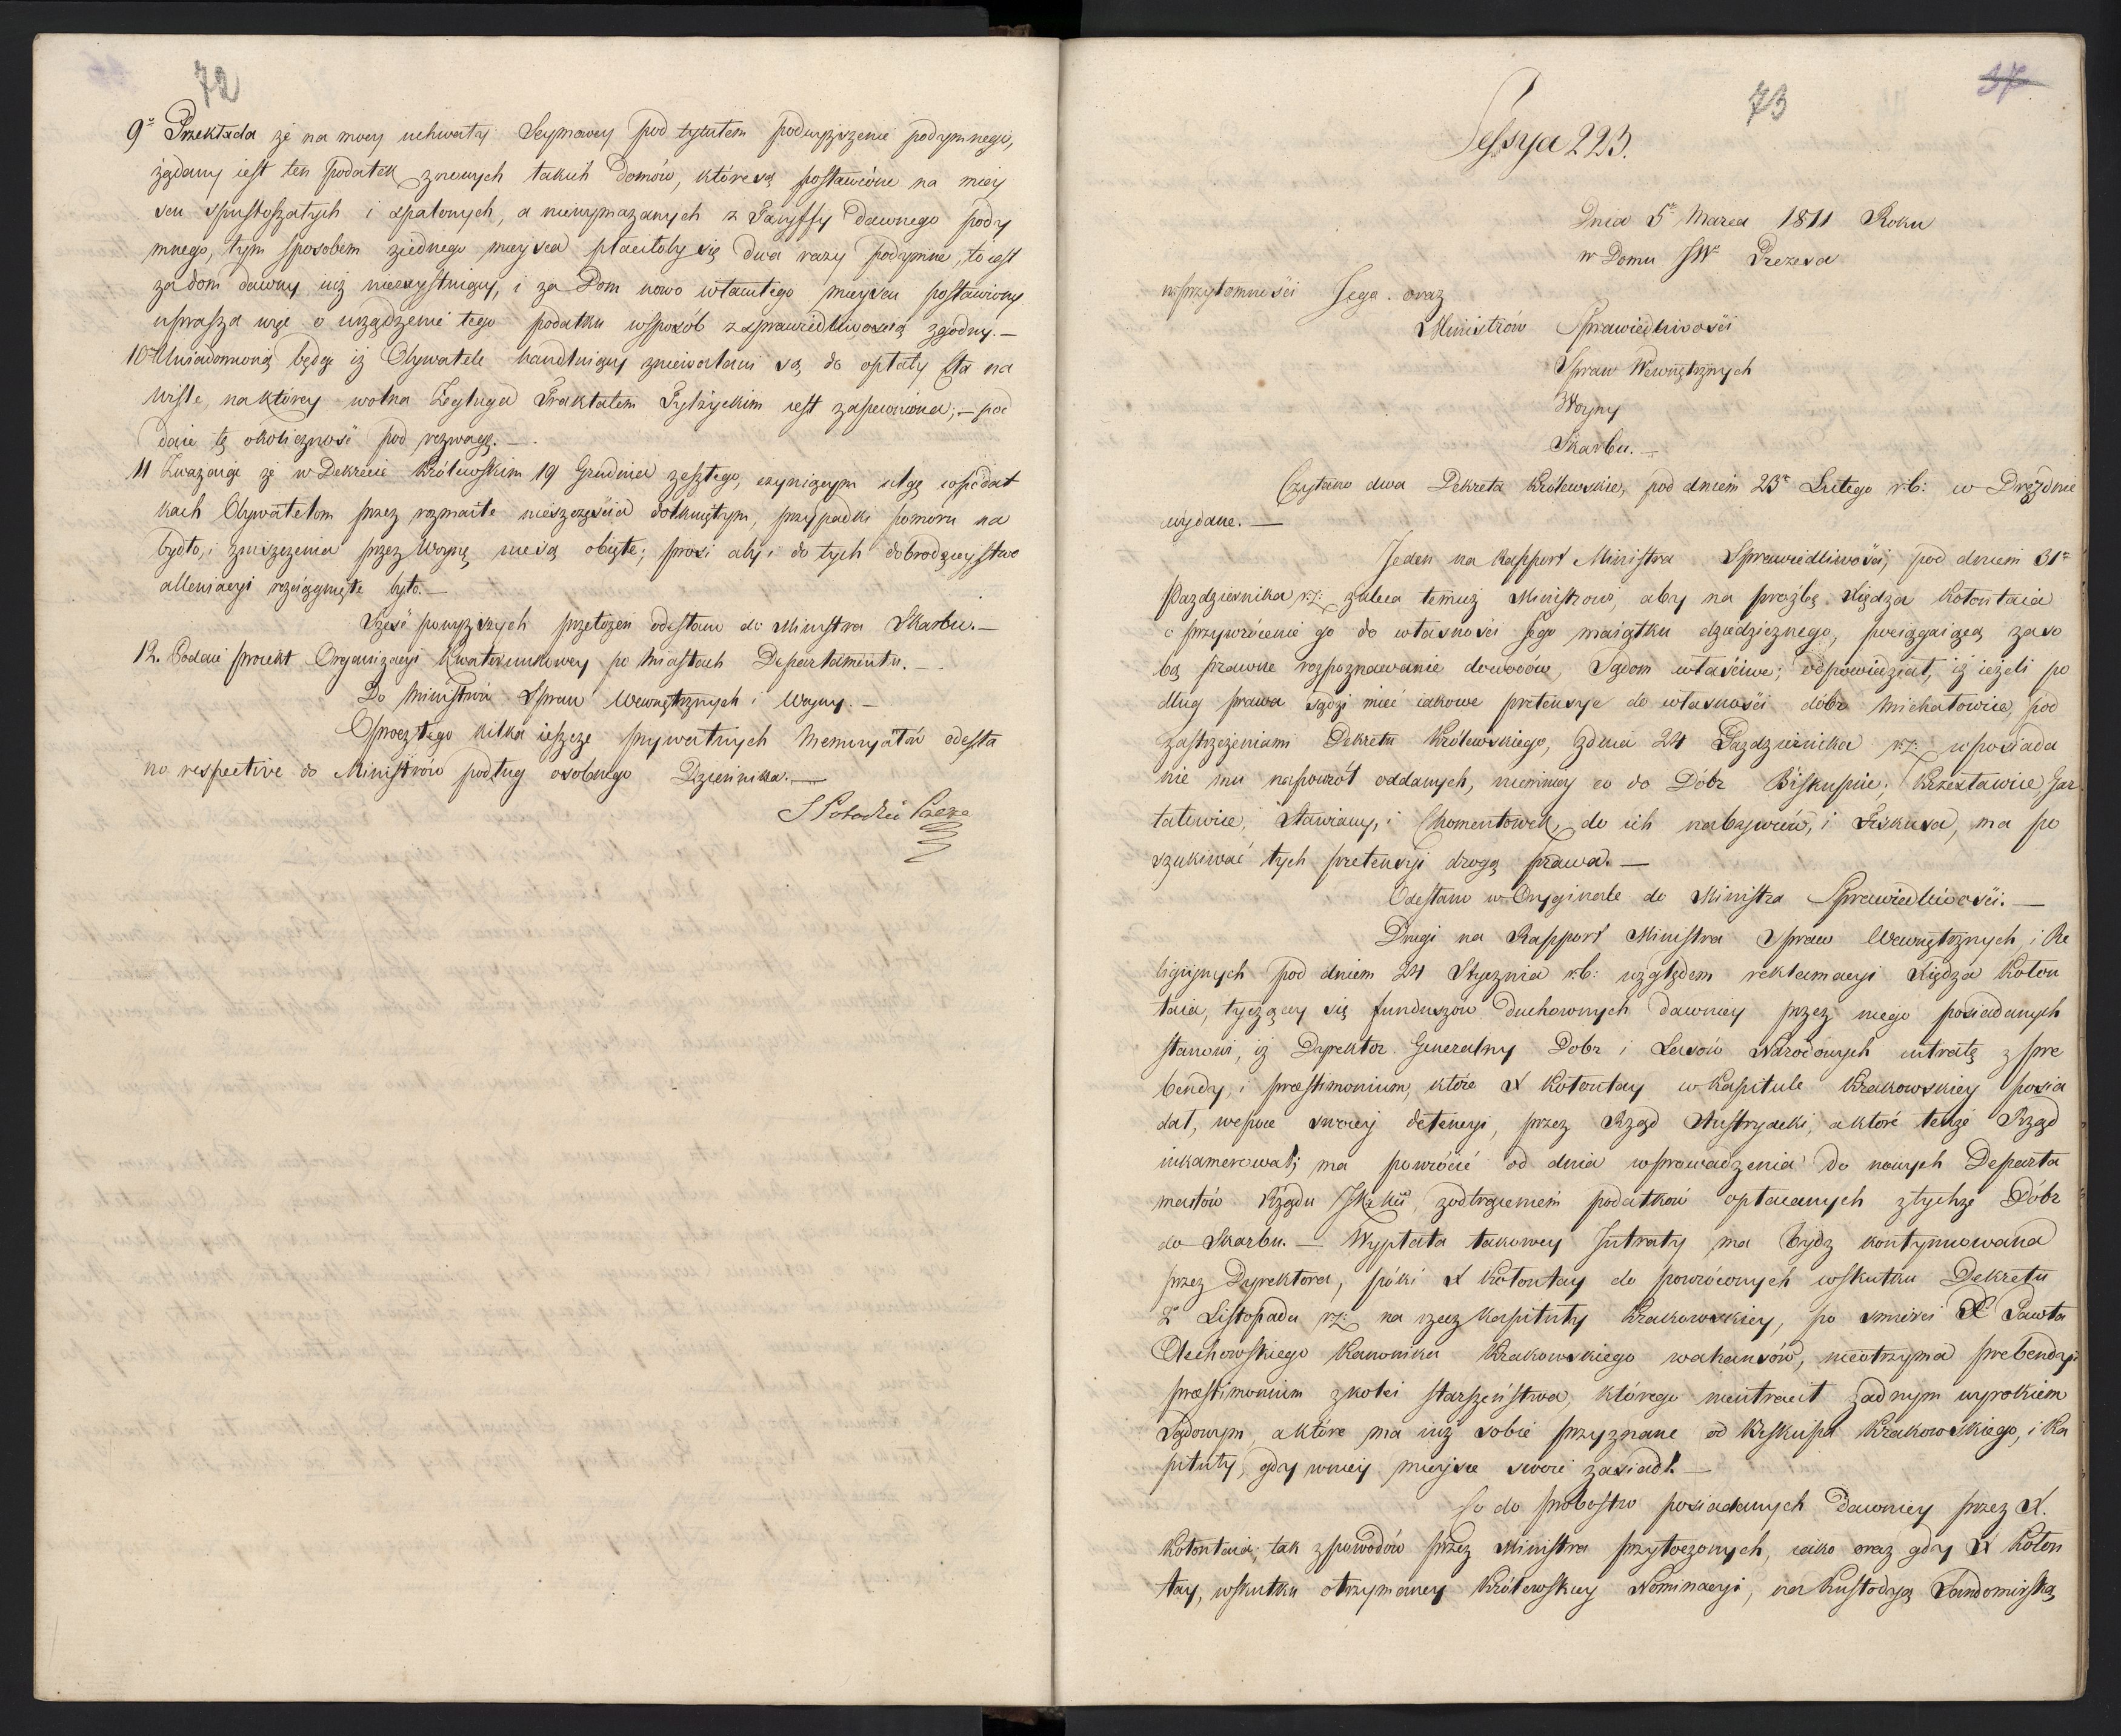 72
9° Przekłada że na mocy uchwały Seymowey pod tytułem podwyższenie podymnego,
żądany iest ten podatek z nowych takich Domów, które są postawione na miey
scu spustoszałych i spalonych, a niewymazanych z Taryffy dawnego pody
mnego, tym sposobem z iednego mieysca płaciłoby się dwa razy podymne, to iest
za dom dawny iuż nieexystuiący, i za Dom nowo w tamtego mieyscu postawiony
uprasza więc o urządzenie tego podatku w sposób z sprawiedliwością zgodny. —
10° Uwiadomioną będąc iż Obywatele handluiący zniewalani są do opłaty Cła na
Wiśle, na którey wolna Żegluga Traktatem Tylżyckim iest zapewniona; — pod
daie tę okoliczność pod rozwagę. —
11 Zważaiąc że w Dekrecie Królewskim 19 Grudnia zeszłego, czyniącym ulgę w podat
kach Obywatelom przez rozmaite nieszczęścia dotkniętym, przypadki pomoru na
bydło, i zniszczenia przez Woynę nie są obięte; prosi aby i do tych dobrodzieystwo
allewiacyi rozciągnięte było. —
Sześć powyższych przełożeń odesłano do Ministra Skarbu. —
12. Podaie proiekt Organizacyi Kwaterunkowey po Miastach Departamentu. —
Do Ministrów Spraw Wewnętrznych i Woyny. —
Oprocz tego kilka ieszcze prywatnych Memoryałów odesła
no respective do Ministrów podług osobnego Dziennika. —
S Potocki Prezes
73
37
Sessya 223.
Dnia 5° Marca 1811 Roku
w Domu JW° Prezesa
w przytomności Jego oraz
Ministrów Sprawiedliwości
Spraw Wewnętrznych
Woyny
Skarbu. —
Czytano dwa Dekreta Królewskie, pod dniem 23° Lutego r: b: w Dreźdnie
wydane. —
Jeden na Rapport Ministra Sprawiedliwości, pod dniem 31°
Pazdziernika r: z: zaleca temuż Ministrowi, aby na prozbę Xiędza Kołontaia
o przywrócenie go do własności Jego maiątku dziedzicznego, pociągaiącą za so
bą prawne rozpoznawanie dowodów, Sądom właściwe; odpowiedział, iż ieżeli po
dług prawa sądzi mieć iakowe pretensye do własności dóbr Michałowice, pod
zastrzeżeniami Dekretu Królewskiego, z dnia 24 Pazdziernika r: z: w posiada
nie mu napowrót oddanych, niemniey co do Dóbr Biskupice, Krzesławice, Gar
tatowice, Stawiany, i Chomentówek, do ich nabywców, i Fiskusa, ma po
szukiwać tych pretensyi drogą prawa. —
Odesłano w Oryginale do Ministra Sprawiedliwości. —
Drugi na Rapport Ministra Spraw Wewnętrznych, i Re
ligiynych pod dniem 24 Stycznia r: b: względem reklamacyi Xiędza Kołon
taia, tyczącey się funduszów duchownych dawniey przez niego posiadanych
stanowi, iż Dyrektor Generalny Dobr i Lasów Narodowych intratę z pre
bendy, i præstimonium, które X Kołontay w Kapitule Krakowskiey posia
dał, w epoce swoiey detencyi, przez Rząd Austryacki, a które tenże Rząd
inkamerował; ma powrócić od dnia wprowadzenia do nowych Departa
mentów Rządu JKrKu, z odtrąceniem podatków opłacanych z tychże Dóbr
do Skarbu. — Wypłata takowey Intraty ma bydz kontynuowana
przez Dyrektora, póki X Kołontay do powróconych w skutku Dekretu
2° Listopada r: z: na rzecz Kapituły Krakowskiey, po śmierci X° Pawła
Olechowskiego Kanonika Krakowskiego wakansów, nieotrzyma prebendy i
præstimonium z kolei starszeństwa, którego nieutracił żadnym wyrokiem
Sądowym, a które ma iuż sobie przyznane od Biskupa Krakowskiego, i Ka
pituły, gdy w niey mieysce swoie zasiadł. —
Co do probostw posiadanych dawniey przez X.
Kołontaia, tak z powodów przez Ministra przytoczonych, iako oraz gdy X Kołon
tay, w skutku otrzymaney Królewskiey Nominacyi, na Kustodyą Sandomirską